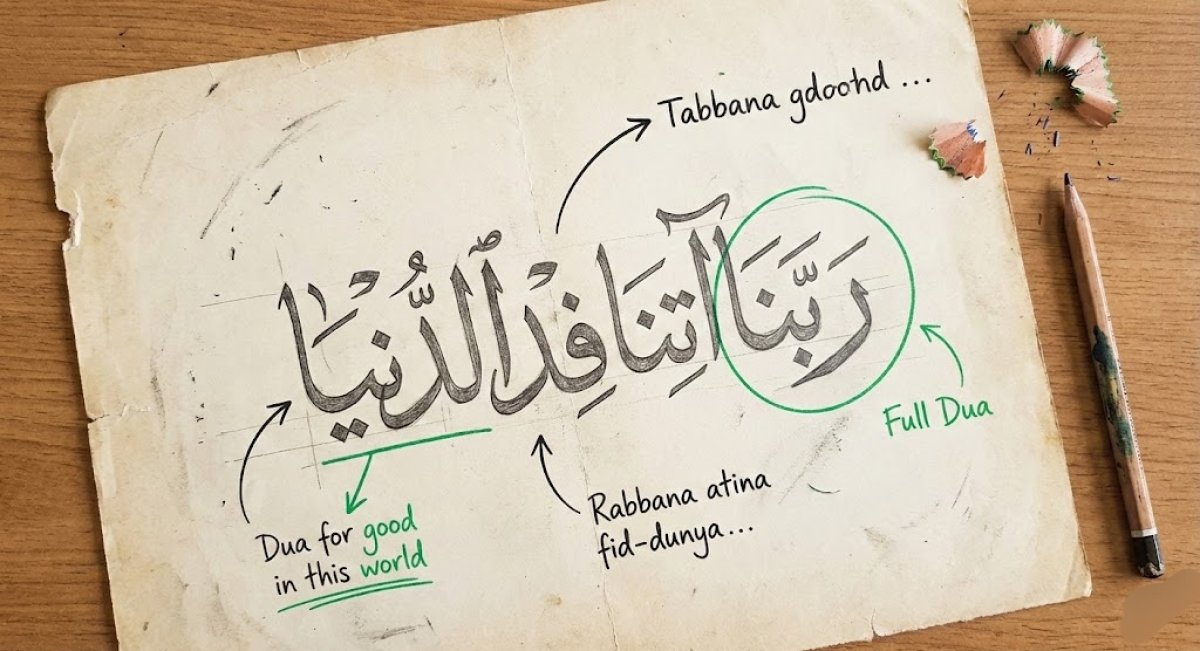 Tabbana gdoohd ...
رَبَّنَا آتِنَا فِدْ ٱلدُّنْيَا
Full Dua
Rabbana atina
fid-dunya...
Dua for good
in this world